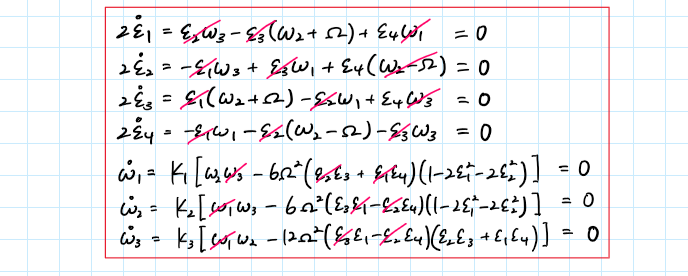 2ε̇₁ = ε₂ω₃ − ε₃(ω₂+Ω) + ε₄ω₁ = 0
2ε̇₂ = −ε₁ω₃ + ε₃ω₁ + ε₄(ω₂−Ω) = 0
2ε̇₃ = ε₁(ω₂+Ω) − ε₂ω₁ + ε₄ω₃ = 0
2ε̇₄ = −ε₁ω₁ − ε₂(ω₂−Ω) − ε₃ω₃ = 0
ω̇₁ = K₁[ω₂ω₃ − 6Ω²(ε₂ε₃ + ε₁ε₄)(1−2ε₁²−2ε₂²)] = 0
ω̇₂ = K₂[ω₁ω₃ − 6Ω²(ε₃ε₁−ε₂ε₄)(1−2ε₁²−2ε₂²)] = 0
ω̇₃ = K₃[ω₁ω₂ − 12Ω²(ε₃ε₁−ε₂ε₄)(ε₂ε₃ + ε₁ε₄)] = 0